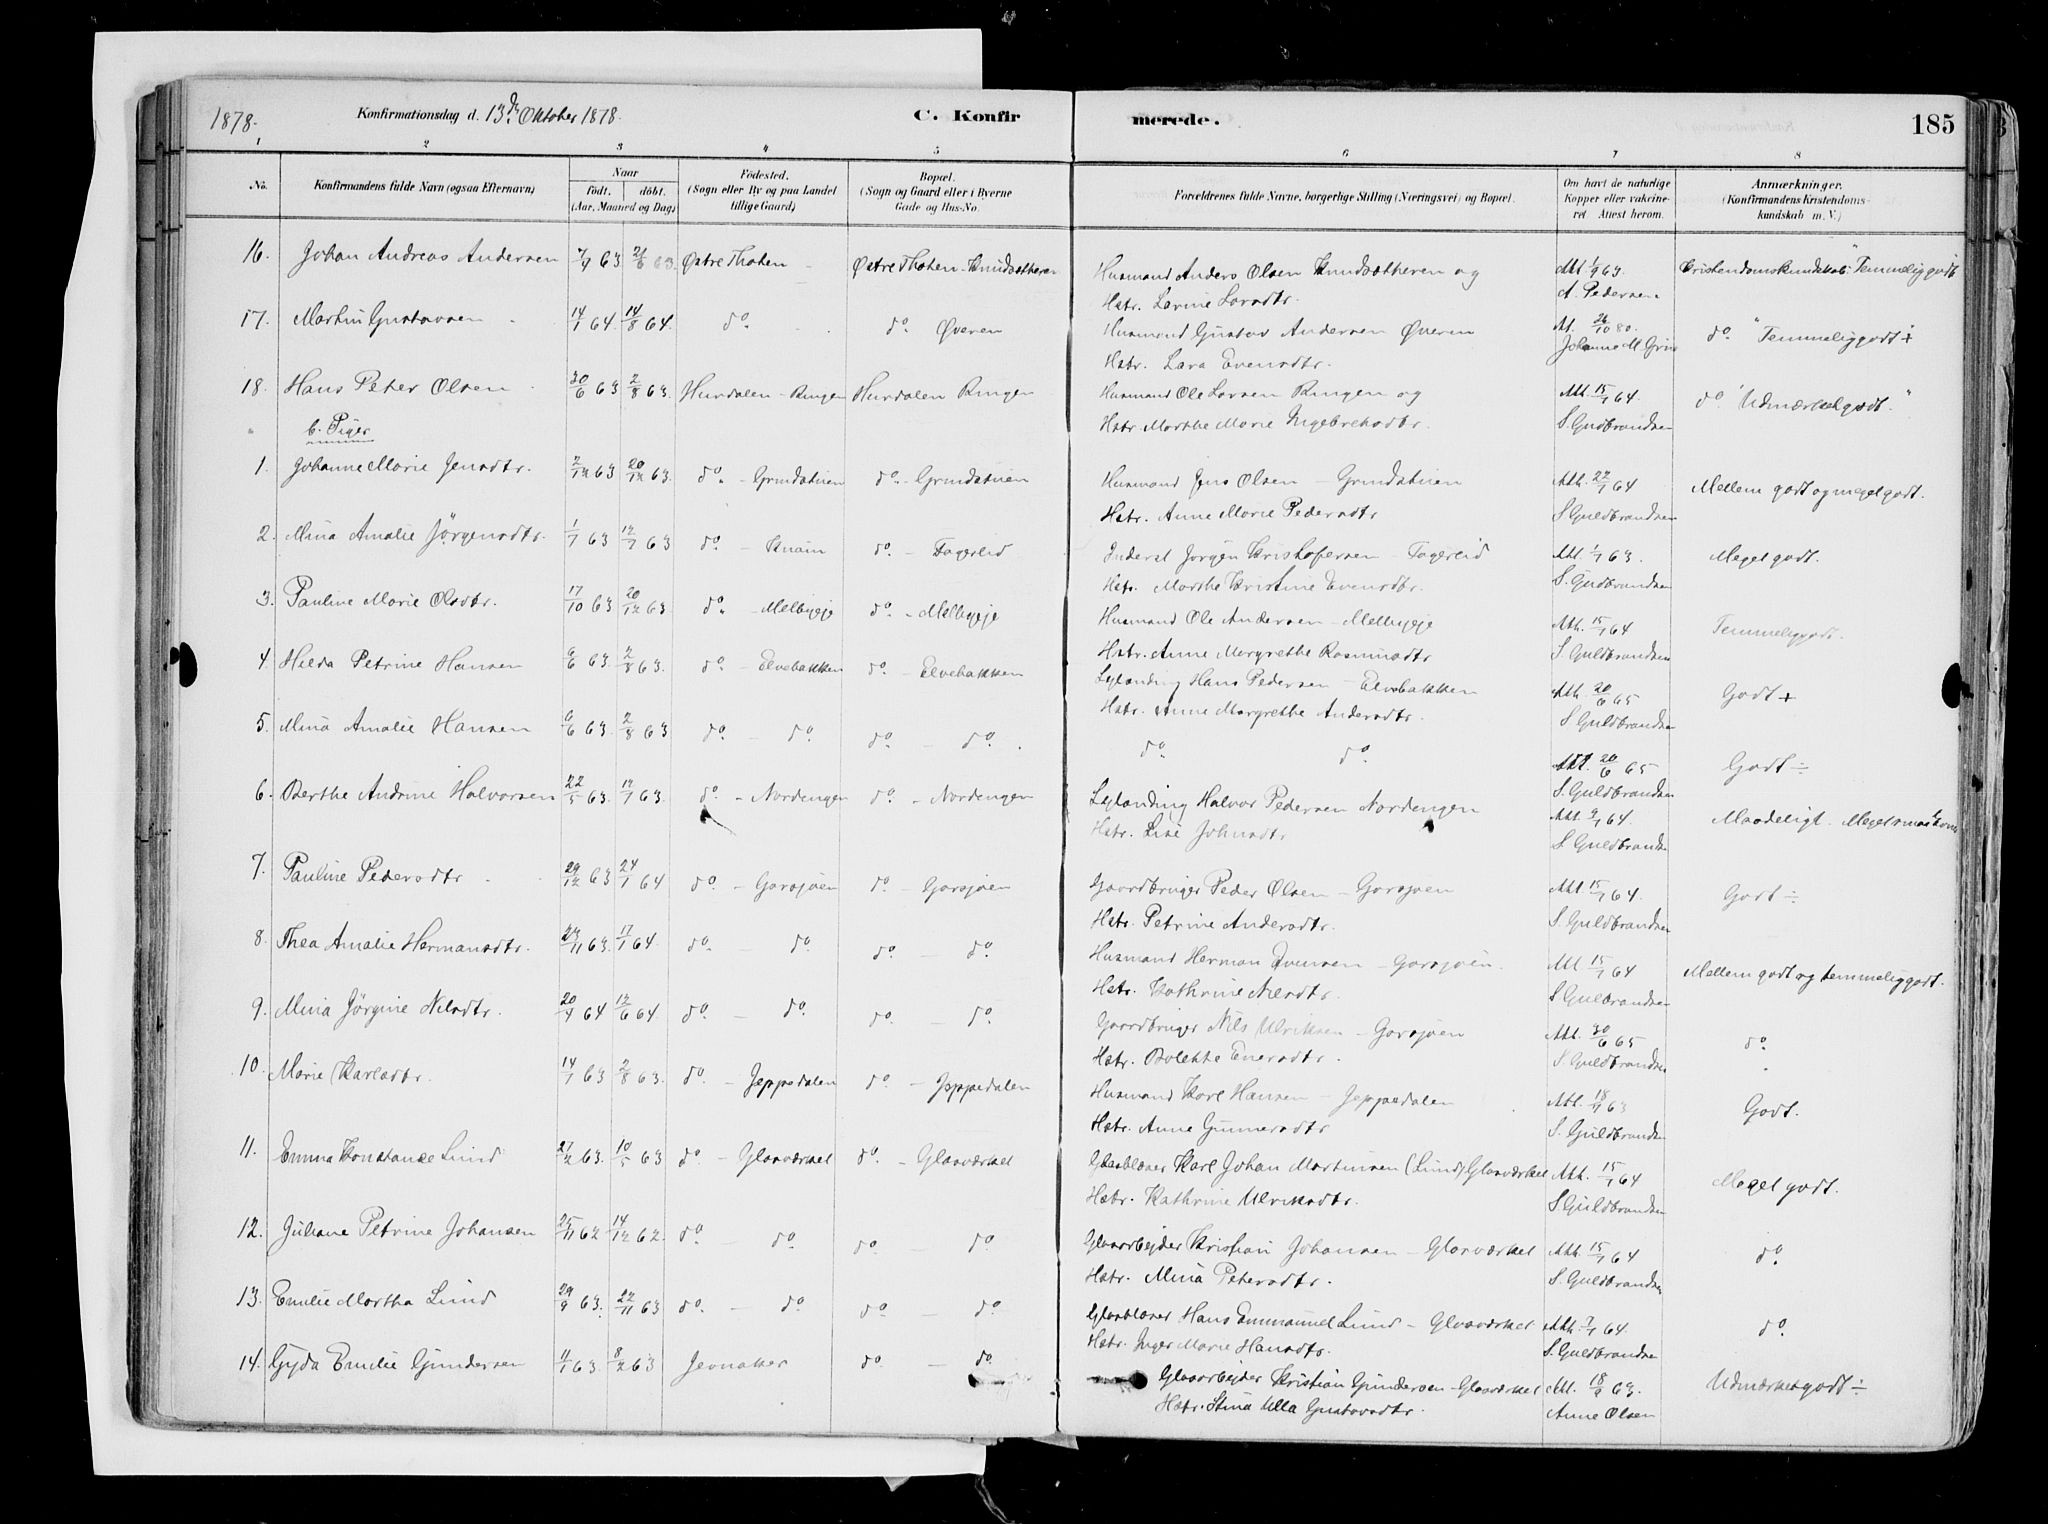 1878. Konfirmationsdag d. 13de Oktober 1878. C. Konfirmerede. 185
1 2 3 4 5 6 7 8
No. Konfirmandens fulde Navn (ogsaa Efternavn) Naar födt. döbt. (Aar, Maaned og Dag) Födested. (Sogn eller By og paa Landet tillige Gaard) Bopæl. (Sogn og Gaard eller i Byerne Gade og Hus-No. Forældrenes fulde Navne, borgerlige Stilling (Næringsvei) og Bopæl. Om havt de naturlige Kopper eller vakcineret Attest herom. Anmærkninger. (Konfirmandens Kristendomskundskab m. V.)
16. Johan Andreas Andersen 63 63. Østre Thoten Østre Thoten - Knudsætheren Husmand Anders Olsen Knudsætheren og Att. 1/9 63. Kristendomskundskab: "Temmelig godt
Hstr. Larine Larsdtr. A. Pedersen
17. Martin Gustavsen 14/1 64. 14/8 64. do do Øveren Husmand Gustav Andersen Øveren At. 26/10 80. do. "Temmelig godt +
Hstr. Lara Evensdtr.
18. Hans Peter Olsen 30/6 63 2/8 63. Hurdalen - Ringen Hurdalen Ringen Husmand Ole Larsen Ringen og Att. 15/1 64. do "Udmærket godt."
b. Piger Hstr. Marthe Marie Ingebretsdtr. S. Gudbrandsen
1. Johanne Marie Jensdtr. 2/12 63 20/12 63. do. - Grindstuen do. - Grindstuen Husmand Jens Olsen - Grindstuen Att. 22/1 64 Mellem godt og meget godt.
Hstr. Anne Marie Pedersdtr S Guldbrandsen
2. Mina Amalie Jörgensdtr. 1/1 63 12/7 63 do. - Knain do. - Fagerlid Inderst Jørgen Kristofersen - Fagerlid Att. 1/1 63. Meget godt.
Hstr. Marthe Kristine Evensdtr. S. Gudbrandsen
3. Pauline Marie Olsdtr. 17/10 63 20/12 63. do. - Melbyeje do. - Melbyeje Husmand Ole Andersen - Melbyeje Att. 15/1 64 Temmelig godt.
Hstr. Anne Margrethe Rasmusdtr S. Guldbrandsen
4. Hilda Petrine Hansen 6/6 63. 2/8 63. do. - Elvebakken do. - Elvebakken Leylænding Hans Pedersen - Elvebakken Att. 20/6 65 Godt +
Hstr. Anne Margrethe Andersdtr. S. Guldbrandsen
5. Mina Amalie Hansen 6/6 63. 2/8 63 do. - do. do. - do. do do Att. 20/6 65 Godt ÷
S. Guldbrandsen
6. Berthe Andrine Halvorsen 22/5 63. 12/7 63. do. - Nordengen do. - Nordengen Leylænding Halvor Pedersen Nordengen Att. 9/1 64. Maadeligt.
Hstr. Lise Johnsdtr S. Guldbrandsen
7. Pauline Pedersdtr 29/12 63 24/1 64 do - Garsjøen do. - Garsjøen Gaardbruger Peder Olsen - Garsjøen Att. 15/1 64. Godt ÷
Hstr. Petrine Andersdtr. S. Guldbrandsen
8. Thea Amalie Hermansdtr. 23/11 63. 17/1 64. do. - do. do. - do. Husmand Herman Evensen - Garsjøen. Att 15/1 64 Mellem godt og temmelig godt.
Hstr. Kathrine Nilsdtr. S Guldbrandsen
9. Mina Jörgine Nilsdtr. 20/4 64 12/6 64. do. - do. do. - do. Gaardbruger Nils Ulriksen - Garsjøen Att. 30/6 65 do.
Hstr. Bolette Enersdtr. S. Guldbrandsen
10. Marie Karlsdtr. 14/7 63 2/8 63. do. - Jeppedalen do - Jeppedalen Husmand Karl Hansen - Jeppedalen Att. 18/9 63 Godt.
Hstr. Anne Gunnersdtr S. Guldbrandsen
11. Emma Konstanse Lund 27/2 63. 10/5 63 do - Glasværket do. - Glasværket Glasblæser Karl Johan Martinsen (Lund) Glasværket Att. 15/1 64 Meget godt.
Hstr. Kathrine Ulriksdtr. S Guldbrandsen
12. Juliane Petrine Johansen 25/11 62 14/12 62. do. - do. do - do Glasarbejder Kristian Johansen - Glasværket Att. 15/1 64 do.
Hstr. Mina Petersdtr. S. Guldbrandsen
13. Emilie Martha Lund 29/9 63. 22/11 63 do. - do do - do Glasblæser Hans Emmanuel Lund - Glasværket Att. 7/1 64. do.
Hstr. Inger Marie Hansdtr. S. Guldbrandsen
14. Gyda Emilie Gundersen 11/1 63 8/2 63 Jevnaker do - do Glasarbejder Kristian Gundersen - Glasværket Att. 18/9 63. Udmærket godt ÷
Hstr. Stina Ulla Gustavsdtr. Anne Olsen